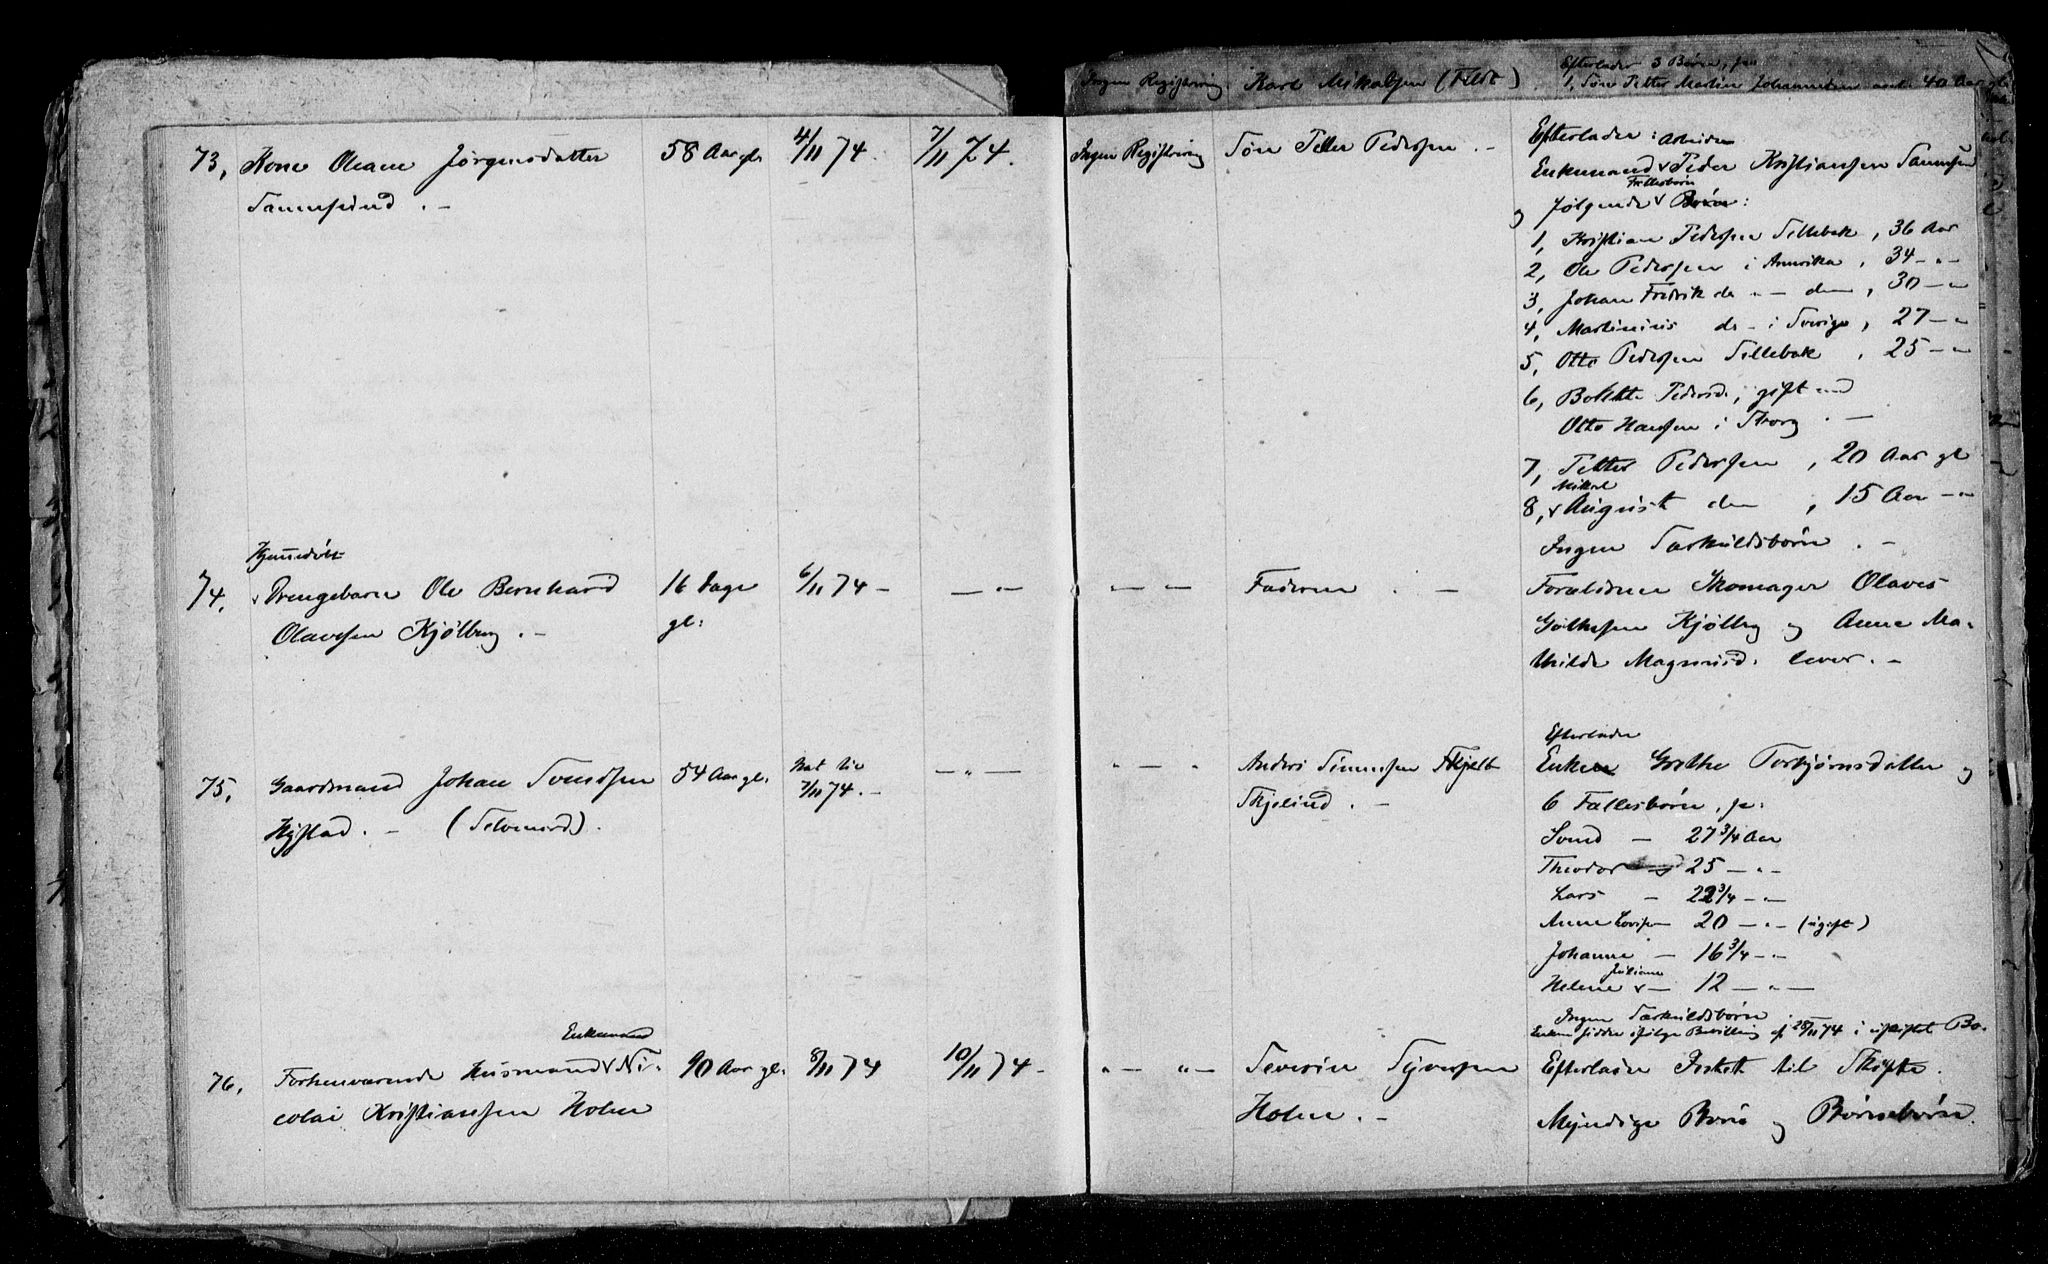 Ingen Registrering Karl Mikalsen (Feldt). Efterlader 3 Børn,
1, Søn Petter Martin Johannesen 40 Aar
73, Kone Oleane Jørgensdatter 58 Aar gl. 4/11 74. 7/11 74. Ingen Registrering Søn Petter Pedersen. - Efterlader: Arbeider
Sannesund. - Enkemand v Peder Kristiansen
og følgende v Fællesbørn Børn:
1, Kristian Pedersen Tellebek, 36 Aar
2, Ole Pedersen i Amerika, 34 - " -
3, Johan Fredrik do " - dem, 30 - "
4, Martinius do - i Sverige, 27 - "
5, Otto Pedersen Tellebek, 25 - "
6, Bolette Pedersd., gift med
Otto Hansen i
7, Petter Pedersen, 20 Aar gl
Mikal
8, v August den, 15 Aar - "
Ingen Særkuldsbørn. -
Hjemmedøbt
74, v Drengebarn Ole Bernhard 16 Dage 6/11 74 - - " - - " - Faderen. - Forældrene Skomager Olaves
Olavesen Kjølberg. - gl: Kjølberg og Anne Ma-
thilde Magnusd. lever. -
Efterlader
75, Gaardmand Johan Svendsen 54 Aar gl. Nat til - " - " - " Anders Simensen Enken Grethe Torbjørnsdatter og
Kystad. - (Selvmord). 7/11 74. - Skjelind. - 6 Fællesbørn,
Svend - 27 3/4 Aar
Theodor 25 - " -
Lars - 22 3/4 - "
Anne Lovise 20 - " - (ugift)
Johanne - 16 3/4 - "
Juliane
Helene v - 12 - " -
Ingen Særkuldsbørn
Enken sidder ifølge Bevilling af 28/11 74 i uskiftet Bo.
Enkemand
76, Forhenværende Husmand v Ni- 90 Aar gl. 8/11 74 10/11 74 - " - " - Severin Syversen Efterladen Intet til Skifte.
colai Kristiansen Holm Holm. - Myndige Børn og Børnebørn.